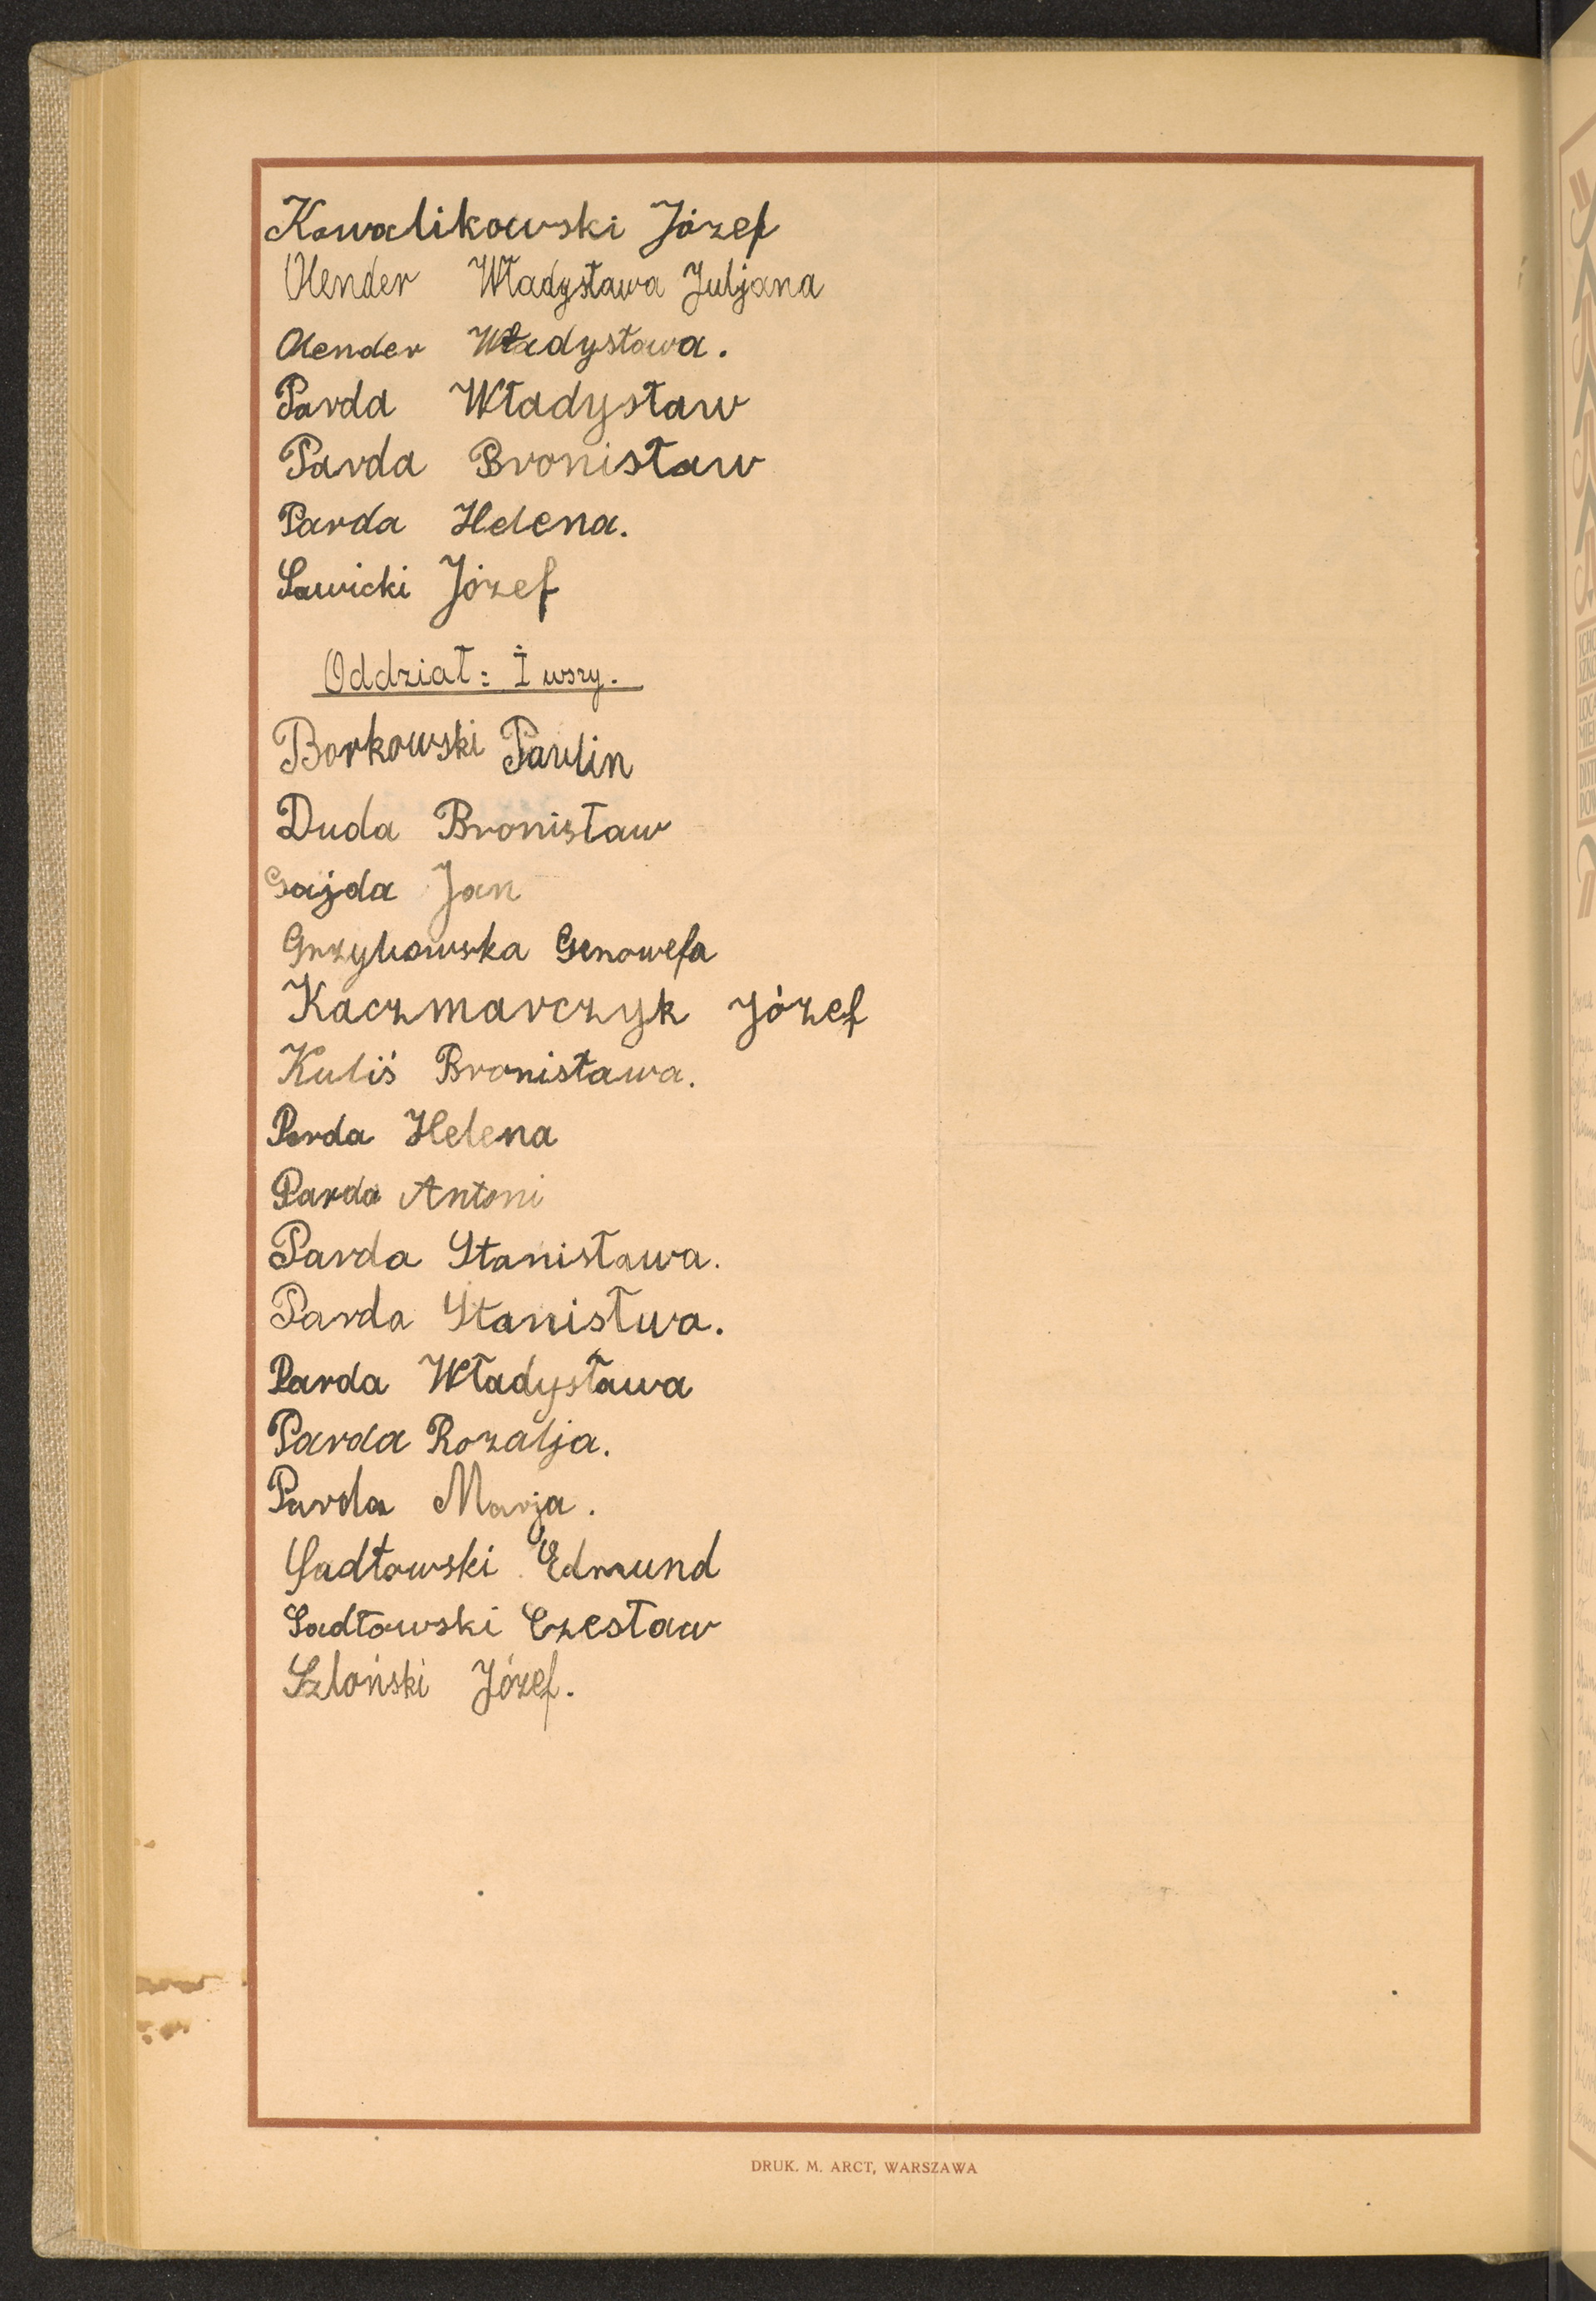 Kowalikowski Józef
Olender Władysława Juljana
Olender Władysława.
Parda Władysław
Parda Bronisław
Parda Helena.
Sawicki Józef
Oddział: I wszy.
Borkowski Paulin
Duda Bronisław
Gajda Jan
Grzybowska Genowefa
Kaczmarczyk Józef
Kuliś Bronisława.
Parda Helena
Parda Antoni
Parda Stanisława.
Parda Stanisłwa.
Parda Władysława
Parda Rozalja.
Parda Marja.
Sadłowski Edmund
Sadłowski Czesław
Szloński Józef.
DRUK. M. ARCT, WARSZAWA